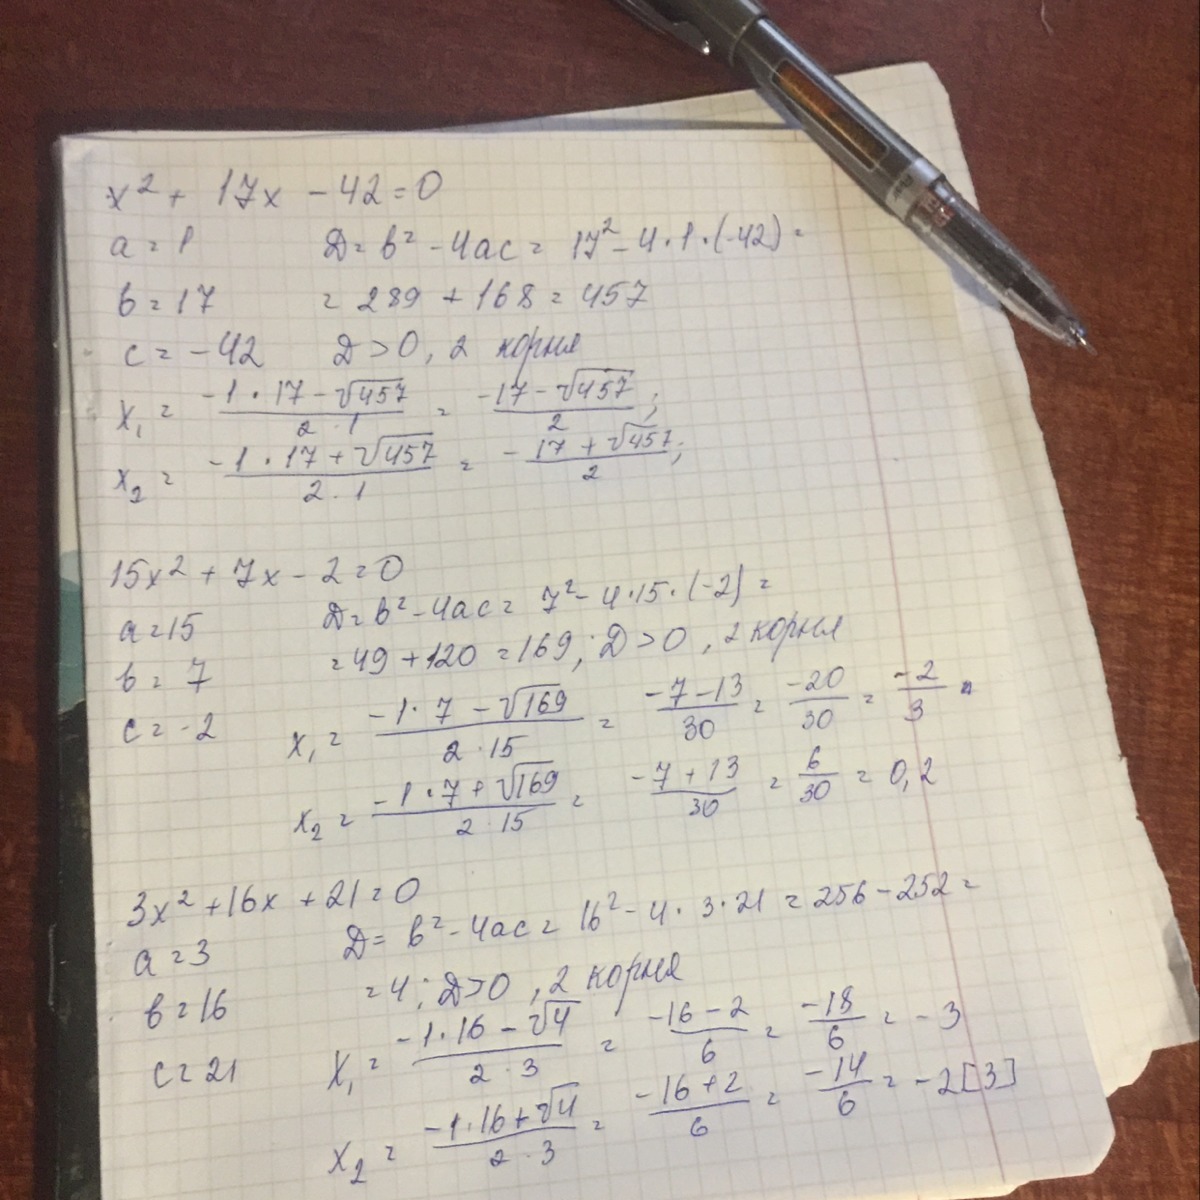 x² + 17x - 42 = 0
a = 1 D = b² - 4ac = 17² - 4·1·(-42) =
b = 17 = 289 + 168 = 457
c = -42 D > 0, 2 корня
x₁ = (-1·17 - √457)/(2·1) = (-17 - √457)/2;
x₂ = (-1·17 + √457)/(2·1) = -(17 + √457)/2;
15x² + 7x - 2 = 0
a = 15 D = b² - 4ac = 7² - 4·15·(-2) =
b = 7 = 49 + 120 = 169; D > 0, 2 корня
c = -2 x₁ = (-1·7 - √169)/(2·15) = (-7 - 13)/30 = -20/30 = -2/3
x₂ = (-1·7 + √169)/(2·15) = (-7 + 13)/30 = 6/30 = 0,2
3x² + 16x + 21 = 0
a = 3 D = b² - 4ac = 16² - 4·3·21 = 256 - 252 =
b = 16 = 4; D > 0, 2 корня
c = 21 x₁ = (-1·16 - √4)/(2·3) = (-16 - 2)/6 = -18/6 = -3
x₂ = (-1·16 + √4)/(2·3) = (-16 + 2)/6 = -14/6 = -2[3]